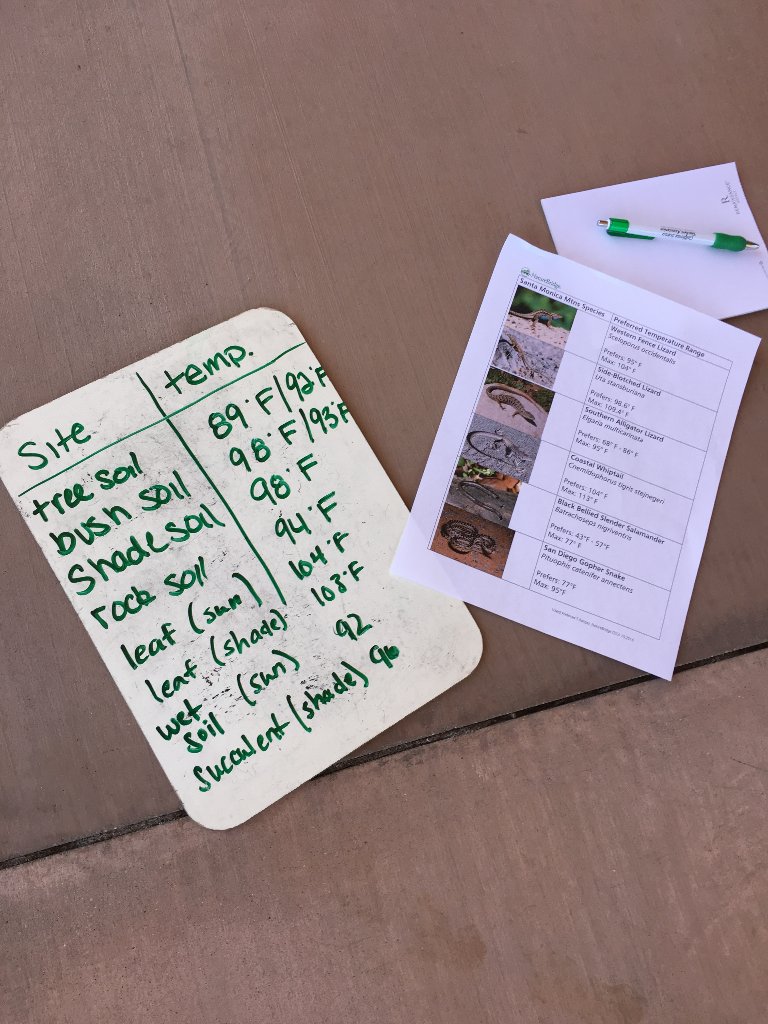 Site temp.
tree soil 89°F/92°F
bush soil 98°F/93°F
Shade soil 98°F
rock soil 94°F
leaf (sun) 104°F
leaf (shade) 103°F
wet soil (sun) 92
succulent (shade) 96
NatureBridge
Santa Monica Mtns Species
Preferred Temperature Range
Western Fence Lizard
Sceloporus occidentalis
Prefers: 95° F
Max: 104° F
Side-Blotched Lizard
Uta stansburiana
Prefers: 98.6° F
Max: 109.4° F
Southern Alligator Lizard
Elgaria multicarinata
Prefers: 68° F - 86° F
Max: 95° F
Coastal Whiptail
Cnemidophorus tigris stejnegeri
Prefers: 104° F
Max: 113° F
Black Bellied Slender Salamander
Batrachoseps nigriventris
Prefers: 43°F - 57°F
Max: 77° F
San Diego Gopher Snake
Pituophis catenifer annectens
Prefers: 77°F
Max: 95°F
R